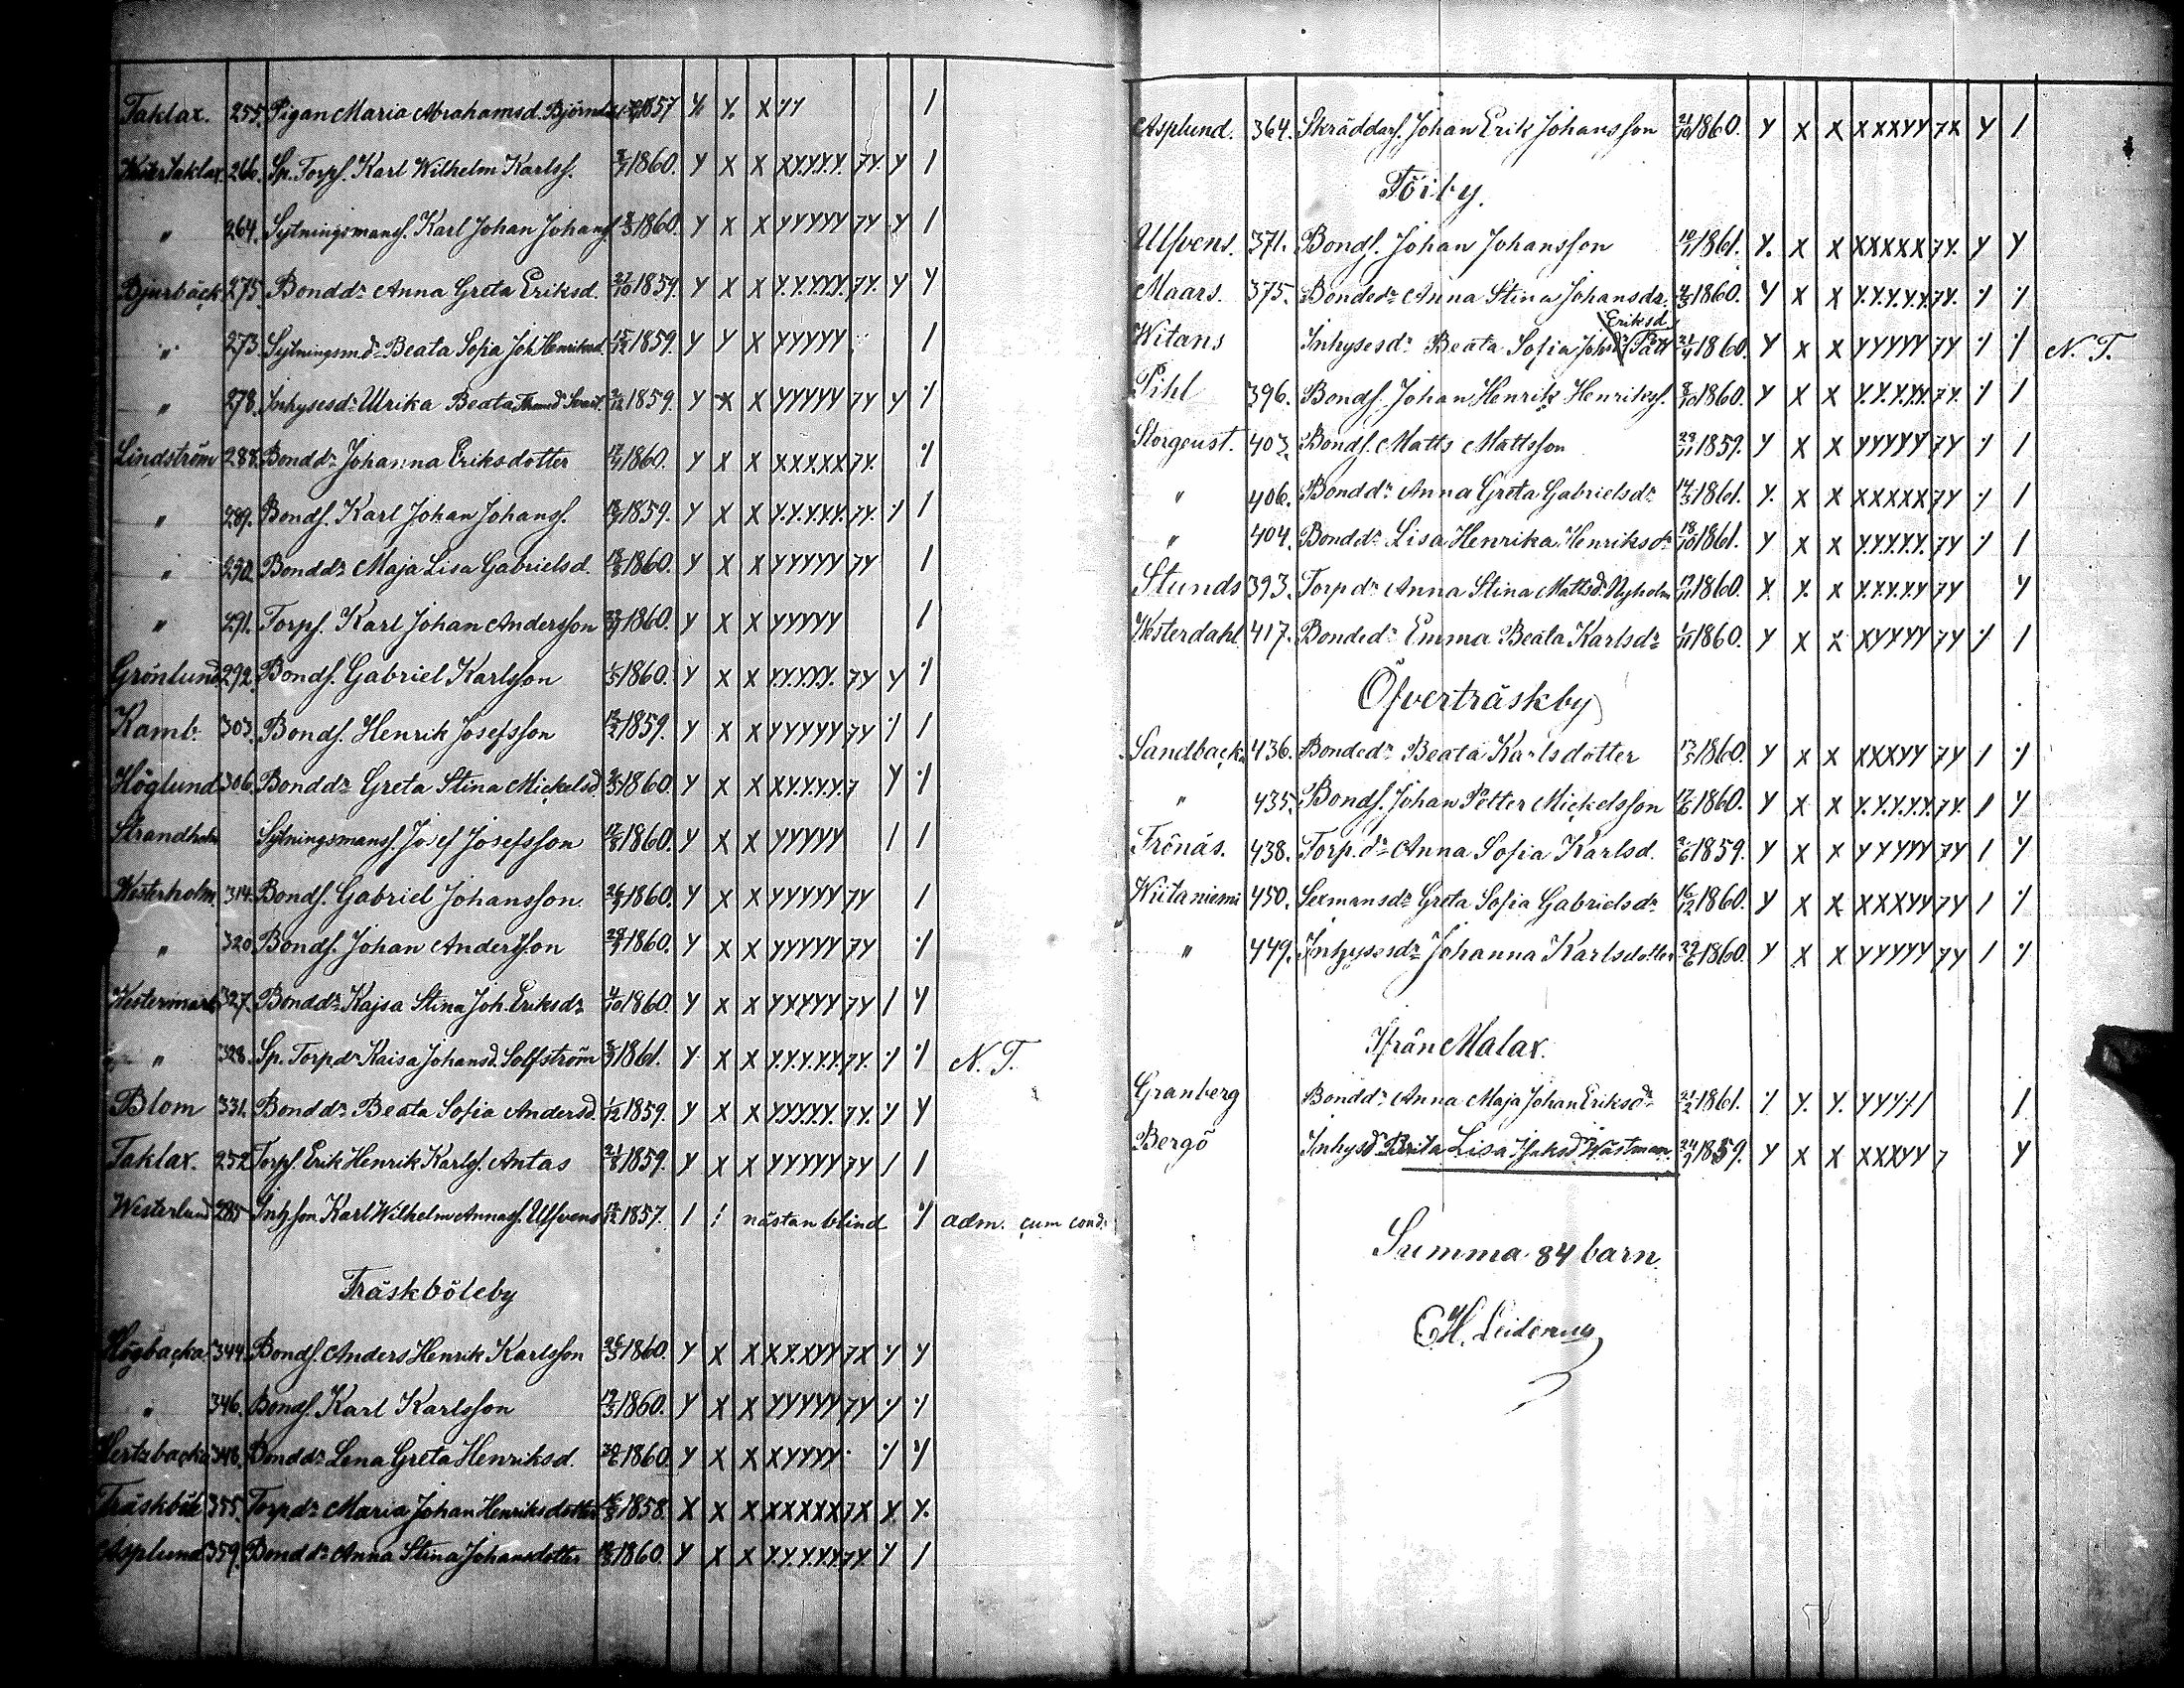 Taklax. 255. Pigan Maria Abrahamsd. 1857 /
266. Sp. Torpf. Karl Wilhelm Karlsf. 1860. Y X X XYYYY 7Y. Y /
" 264. Sytningsmansf. Karl Johan Johansf. 1860. Y X X YYYYY 7Y Y /
Bjurbäck 275. Bondd:r Anna Greta Eriksd. 27/10 1859. Y X X Y.Y.YYY. 7Y. Y Y
" 273. Sytningsm.d:r Beata Sofia Joh Henriksd. 15/12 1859. Y Y X YYYYY /
" 278. Inhysesd:r Ulrika Beata 1859. Y X X YYYYY 7Y Y ٪
Lindström 288. Bondd:r Johanna Eriksdotter 1860. Y X X XXXXX 7Y. ٪
" 289. Bondf. Karl Johan Johansf. 1859. Y X X Y.Y.Y.XY. 7Y. ٪ /
" 290. Bondd:r Maja Lisa Gabrielsd. 1860. Y X X YYYYY 7Y /
" 291. Torpf. Karl Johan Andersson 1860. Y X X YYYYY /
Grönlund 292. Bondf. Gabriel Karlsson 1860. Y X X YY.Y.YY. 7Y Y ٪
Kamb. 303. Bondf. Henrik Josefsson 1859. Y X X YYYYY 7Y ٪ /
Höglund 306. Bondd:r Greta Stina Mickelsd. 1860. Y X X XY.Y.Y.Y. 7 Y ٪
Strandholm Sytningsmansf. Josef Josefsson 1860. Y X X YYYYY / /
Westerholm 314. Bondf. Gabriel Johansson 1860. Y X X YYYYY 7Y /
" 320 Bondf. Johan Andersson 1860. Y X X YYYYY 7Y ٪
Westermark 327. Bondd:r Kajsa Stina Joh. Eriksd:r 4/10 1860. Y X X YXYYY 7Y / Y
" 328. Sp. Torp.d:r Kaisa Johansd. Solfström 1861. Y X X Y.Y.Y.XY. 7Y. ٪ ٪ N. T.
Blom 331. Bondd:r Beata Sofia Andersd. 1/12 1859. Y X X YYYY.Y. 7Y. Y Y
Taklax. 252 Torpf. Erik Henrik Karlsf. Antas 21/8 1859. Y X X YYYYY 7Y / /
Westerlund 285 Inh.son Karl Wilhelm Annasf. Ulfvens 1857. / / nästan blind ٪ adm. cum cond.
Träskböleby
Högbacka 344. Bondf. Anders Henrik Karlsson 26/3 1860. Y X X XY.XYY 7X Y Y
" 346. Bondf. Karl Karlsson 19/3 1860. Y X X YYYYY 7Y ٪ ٪
Hertsbacka 348. Bondd:r Lena Greta Henriksd. 1860. Y X X XYYYY ٪ Y
Träskböle 355. Torpd:r Maria Johan Henriksdotter 1858. X X X XXXXX 7X X Y.
Asplund 359. Bondd:r Anna Stina Johansdotter 1860. Y X X Y.Y.Y.XY. 7Y Y /
Asplund. 364. Skräddarf. Johan Erik Johansson 21/10 1860. Y X X XXXYY 7X Y /
Töiby.
Ulfvens. 371. Bondf. Johan Johansson 1861. Y. X X XXXXX 7Y. Y Y
Maars. 375. Bonded:r Anna Stina Johansd:r. 1860. Y X X Y.Y.Y.Y.Y. 7Y. ٪ ٪
Eriksd.
Witans Inhysesd:r Beata Sofia 21/4 1860. Y X X YYYYY 7Y ٪ ٪ N. T.
Pihl 396. Bondf. Johan Henrik Henriksf. 8/10 1860. Y X X Y.Y.Y.YY. 7Y. ٪ /
Storgeust. 403. Bondf. Matts Mattsson 29/11 1859. Y X X YYYYY 7Y ٪ /
" 406. Bondd:r Anna Greta Gabrielsd:r 14/3 1861. Y. X X XXXXX 7Y ٪ /
" 404. Bonded:r Lisa Henrika Henriksd:r 18/10 1861. Y X X Y.Y.Y.Y.Y. 7Y ٪ /
Stunds 393. Torpd:r Anna Stina Mattsd:r Nyholm 1860. X Y. X Y.Y.Y.YY 7Y Y
Westerdahl 417. Bonded:r Emma Beata Karlsd:r 1860. Y X X XYYYY 7Y ٪ /
Öfverträskby
Sandbacka 436. Bonded:r Beata Karlsdotter 1860. Y X X XXXYY 7Y / ٪
" 435. Bondf. Johan Petter Mickelsson 1860. Y X X Y.Y.Y.Y.Y. 7Y. / Y
Frönäs. 438. Torp.d:r Anna Sofia Karlsd. 1859. Y X X YYYYY 7Y / Y
Wiitaniemi 450. Sexmansd:r Greta Sofia Gabrielsd:r 16/12 1860. Y X X XXXYY 7Y / ٪
" 449. Inhysesd:r Johanna Karlsdotter 29/6 1860. Y X X YYYYY 7Y / ٪
Ifrån Malax.
Granberg Bondd:r Anna Maja Johan Eriksd:r 21/2 1861. ٪ Y. Y. /
Bergö Inhysd:r Brita Lisa Wästman. 24/9 1859. Y X X XXXYY 7 Y
Summa 84 barn.